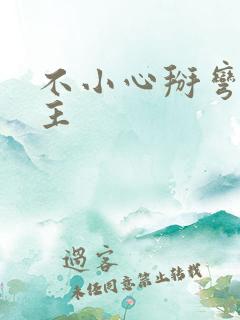 不小心掰弯
王
過客
未经同意禁止转载